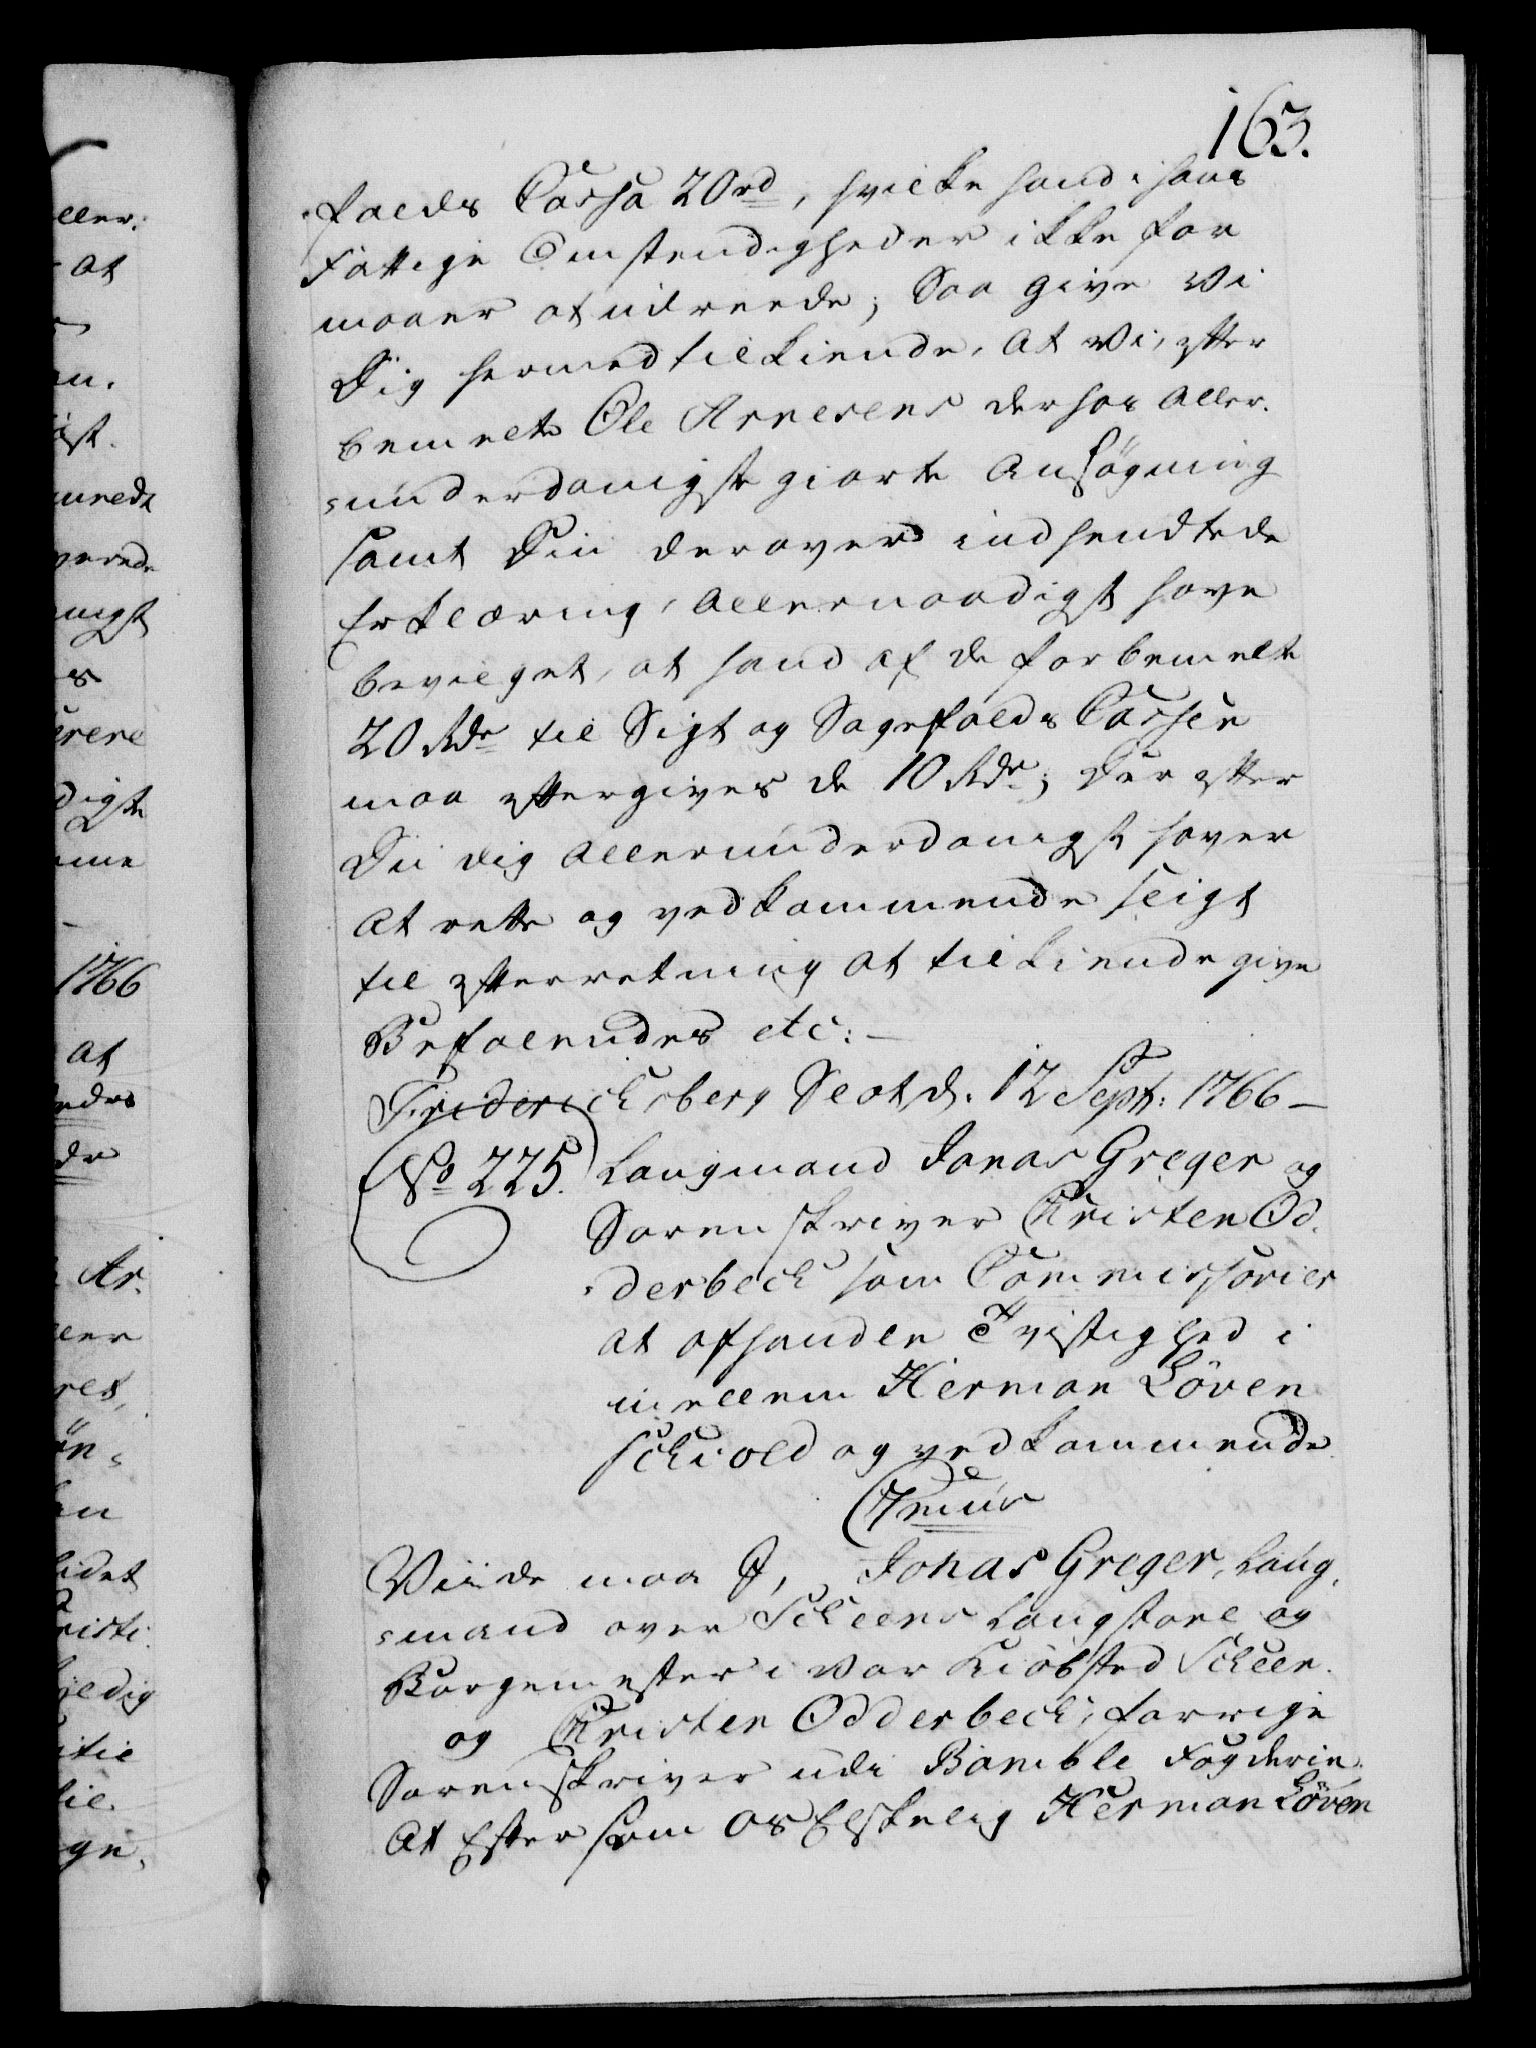 163.
-falds Cassa 20 rd, hvilke hand i hans
Fattige Omstendigheder ikke for
maaer at udreede; Saa give Vi
Dig hermed tilkiende, At Vi, efter
bemelte Ole Arnesens derhos Aller-
-underdanigste giorte Ansøgning
samt Din derover indsendtede
Erklæring, Allernaadigst have
bevilget, at hand af de forbemelte
20 Rdr til Sigt og Sagefalds Cassen
maa eftergives de 10 Rdr; Der efter
Du dig Allerunderdanigst haver
At rette og vedkommende sligt
til efterretning at tilkiende give
Befalendes etc: —
Fridericksberg Slot d. 12 Sept: 1766 —
No 225. Laugmand Jonas Greger og
Sorenskriver Christen Od-
-derbech som Commissarier
at afhandle Tvistighed i
mellem Herman Löven
schiold og vedkommende
Vnius
Viide maa I, Jonas Greger, Laug-
-mand over Scheens Laugstoel og
Borgemester i Vor Kiøbsted Scheen
og Christen Odderbech, forrige
Sorenskriver udi Bamble Fogderie,
At Eftersom Os Elskelig Herman Löven
ller:
at
an.
øst.
verede
nigst
s
digste
1766
at
Ar-
ller
ret,
øn-
en
idet
risti
ldig
til
gn,